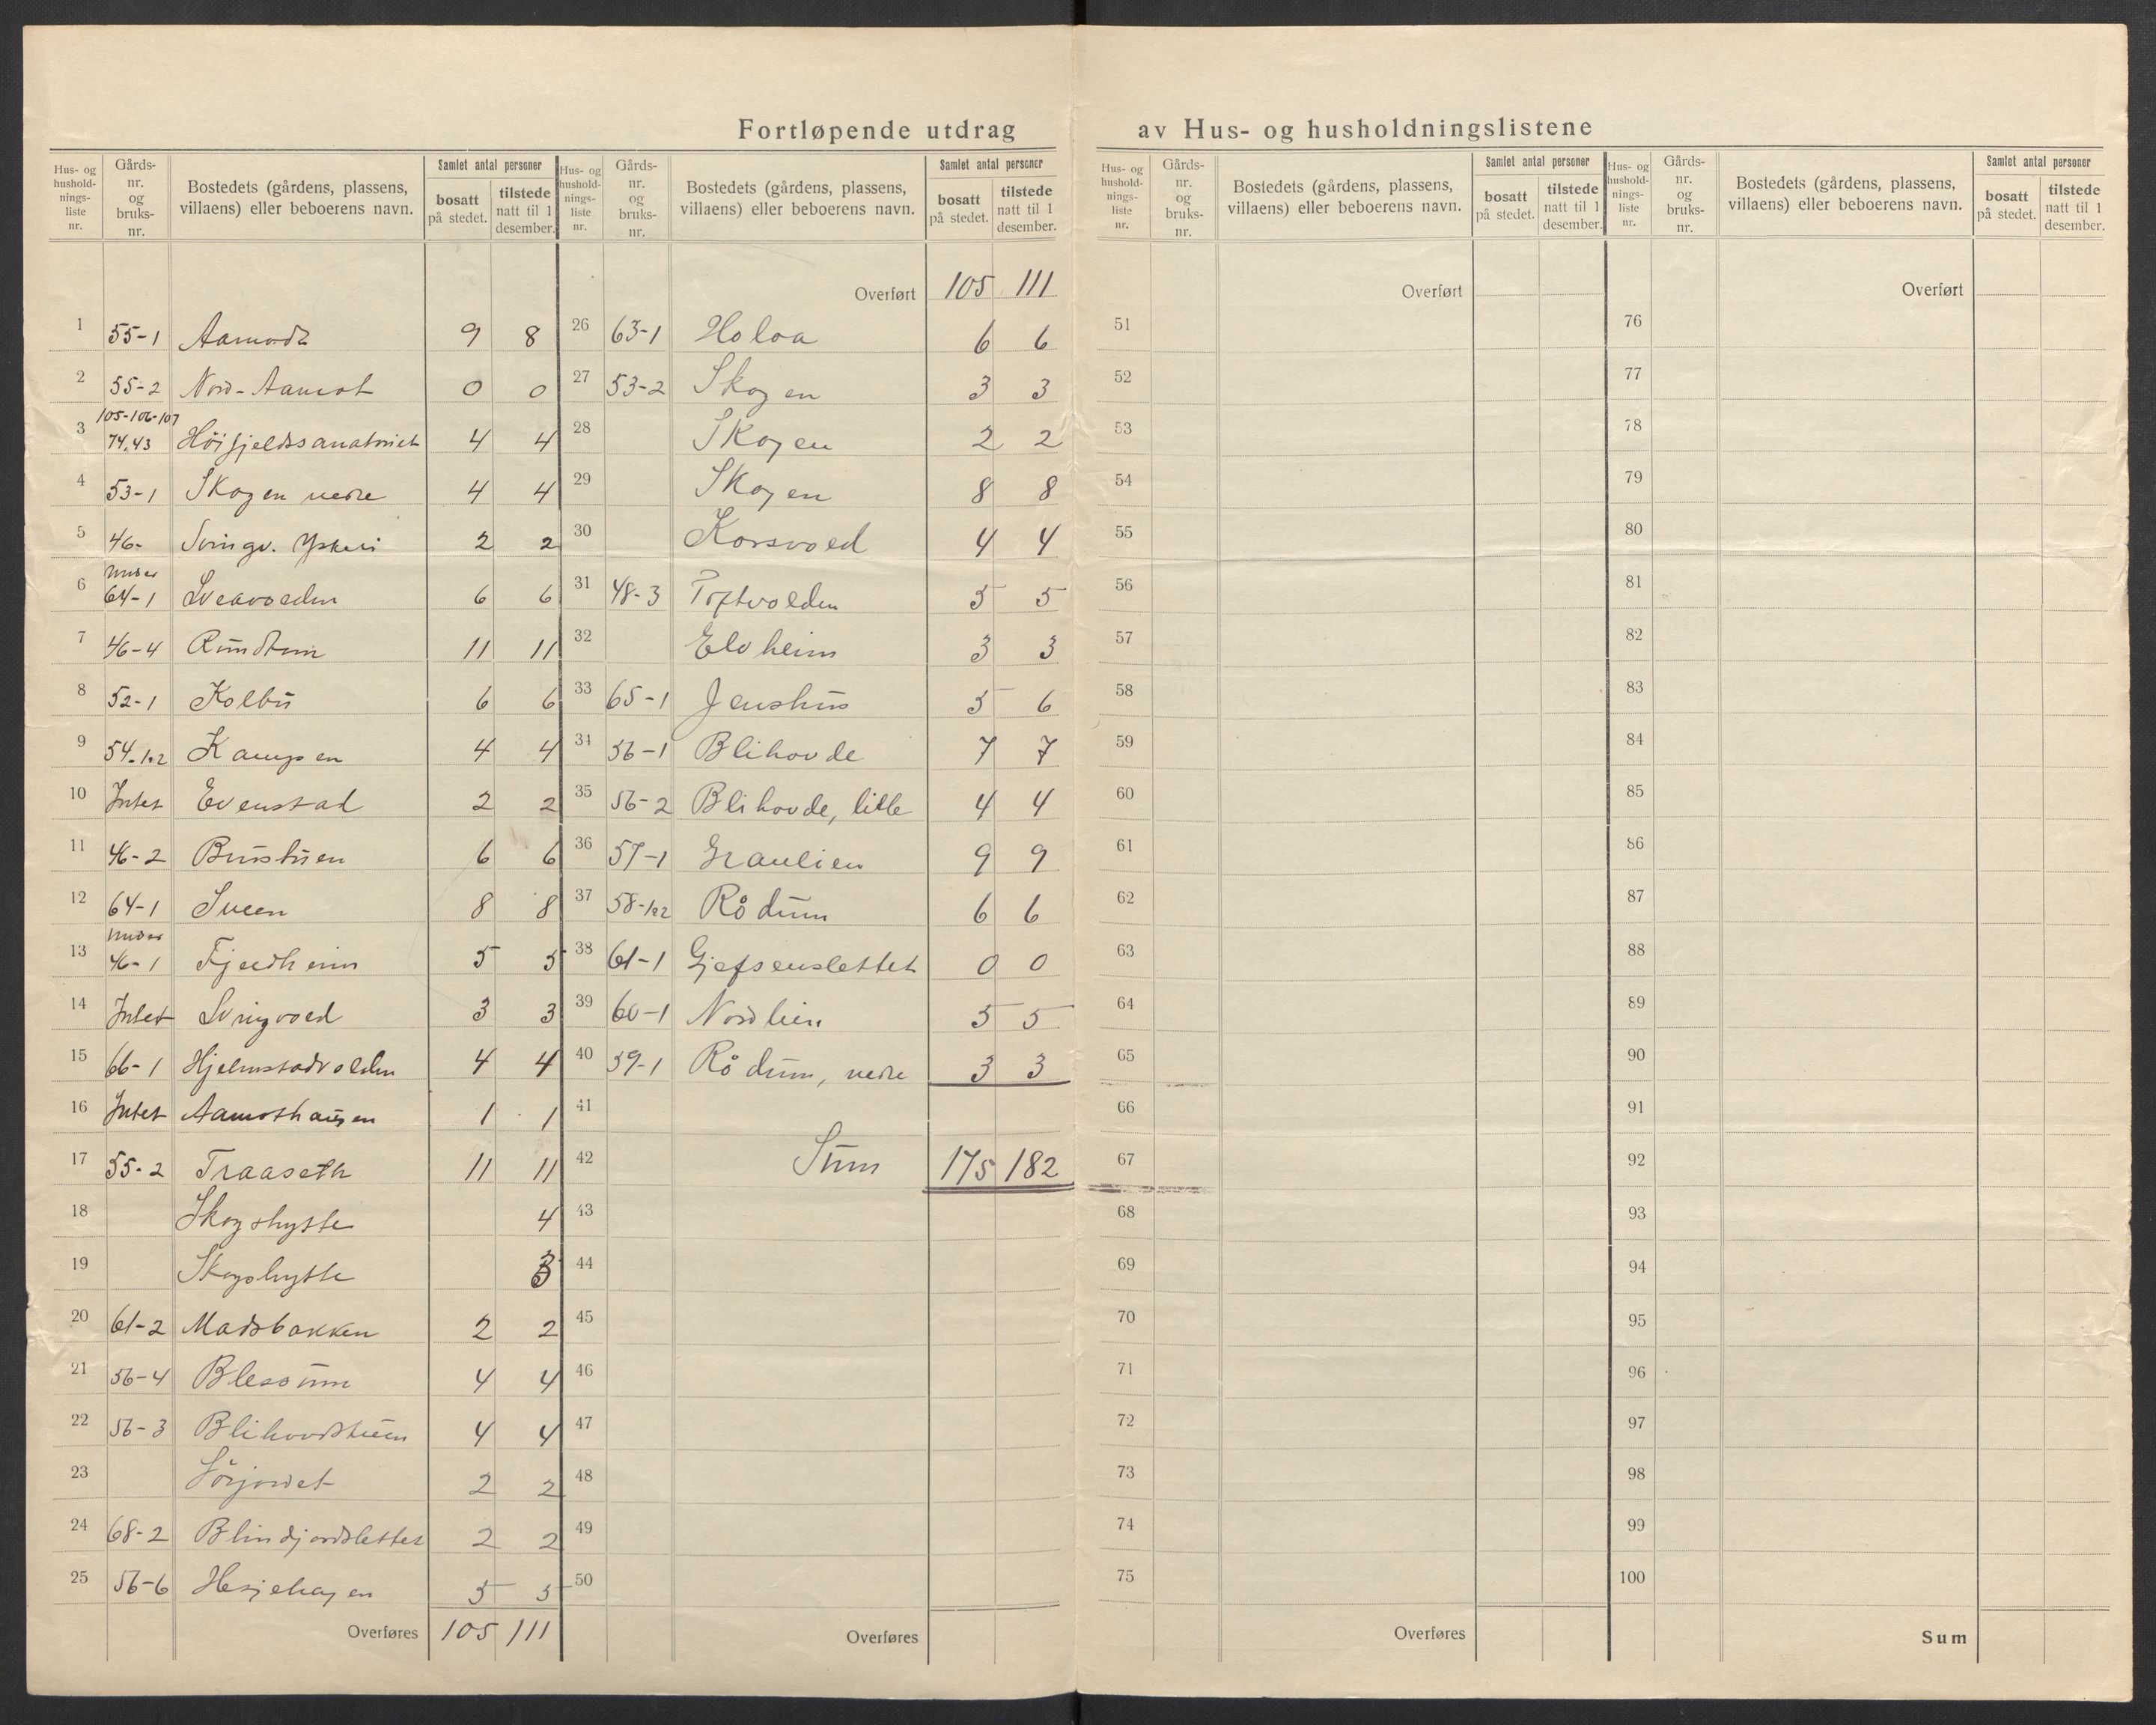 Fortløpende utdrag av Hus- og husholdningslistene
Hus- og husholdnings-liste nr. Gårds-nr. og bruks-nr. Bostedets (gårdens, plassens, villaens) eller beboerens navn. Samlet antal personer bosatt på stedet. tilstede natt til 1 desember.
1 55-1 Aamodt 9 8
2 55-2 Nord-Aamot 0 0
3 105-106-107 74,43 Höifjeldssanatoriet 4 4
4 53-1 Skogen nedre 4 4
5 46- Svingv. Yskeri 2 2
6 under 64-1 Sveavolden 6 6
7 46-4 Rundtom 11 11
8 52-1 Kolbu 6 6
9 54-1,2 Kampen 4 4
10 Intet Evenstad 2 2
11 46-2 Brustuen 6 6
12 64-1 Sveen 8 8
13 under 46-1 Fjeldheim 5 5
14 Intet Svingvold 3 3
15 66-1 Hjelmstadvolden 4 4
16 Intet Aamothaugen 1 1
17 55-2 Traaseth 11 11
18 Skogshytte 4
19 Skogshytte 3
20 61-2 Madsbakken 2 2
21 56-4 Blessum 4 4
22 56-3 Blihovdstuen 4 4
23 Sörjordet 2 2
24 68-2 Blindjordslettet 2 2
25 56-6 Hesjehagen 5 5
Overføres 105 111
Hus- og husholdnings-liste nr. Gårds-nr. og bruks-nr. Bostedets (gårdens, plassens, villaens) eller beboerens navn. Samlet antal personer bosatt på stedet. tilstede natt til 1 desember.
Overført 105 111
26 63-1 Holoa 6 6
27 53-2 Skogen 3 3
28 Skogen 2 2
29 Skogen 8 8
30 Korsvold 4 4
31 48-3 Toftvolden 5 5
32 Elvheim 3 3
33 65-1 Jenshus 5 6
34 56-1 Blihovde 7 7
35 56-2 Blihovde, litle 4 4
36 57-1 Graulien 9 9
37 58-1,2 Rådum 6 6
38 61-1 Gjefsenslettet 0 0
39 60-1 Nordlien 5 5
40 59-1 Rådum, nedre 3 3
41
42 Sum 175 182
43
44
45
46
47
48
49
50
Overføres
Hus- og husholdnings-liste nr. Gårds-nr. og bruks-nr. Bostedets (gårdens, plassens, villaens) eller beboerens navn. Samlet antal personer bosatt på stedet. tilstede natt til 1 desember.
Overført
51
52
53
54
55
56
57
58
59
60
61
62
63
64
65
66
67
68
69
70
71
72
73
74
75
Overføres
Hus- og husholdnings-liste nr. Gårds-nr. og bruks-nr. Bostedets (gårdens, plassens, villaens) eller beboerens navn. Samlet antal personer bosatt på stedet. tilstede natt til 1 desember.
Overført
76
77
78
79
80
81
82
83
84
85
86
87
88
89
90
91
92
93
94
95
96
97
98
99
100
Sum